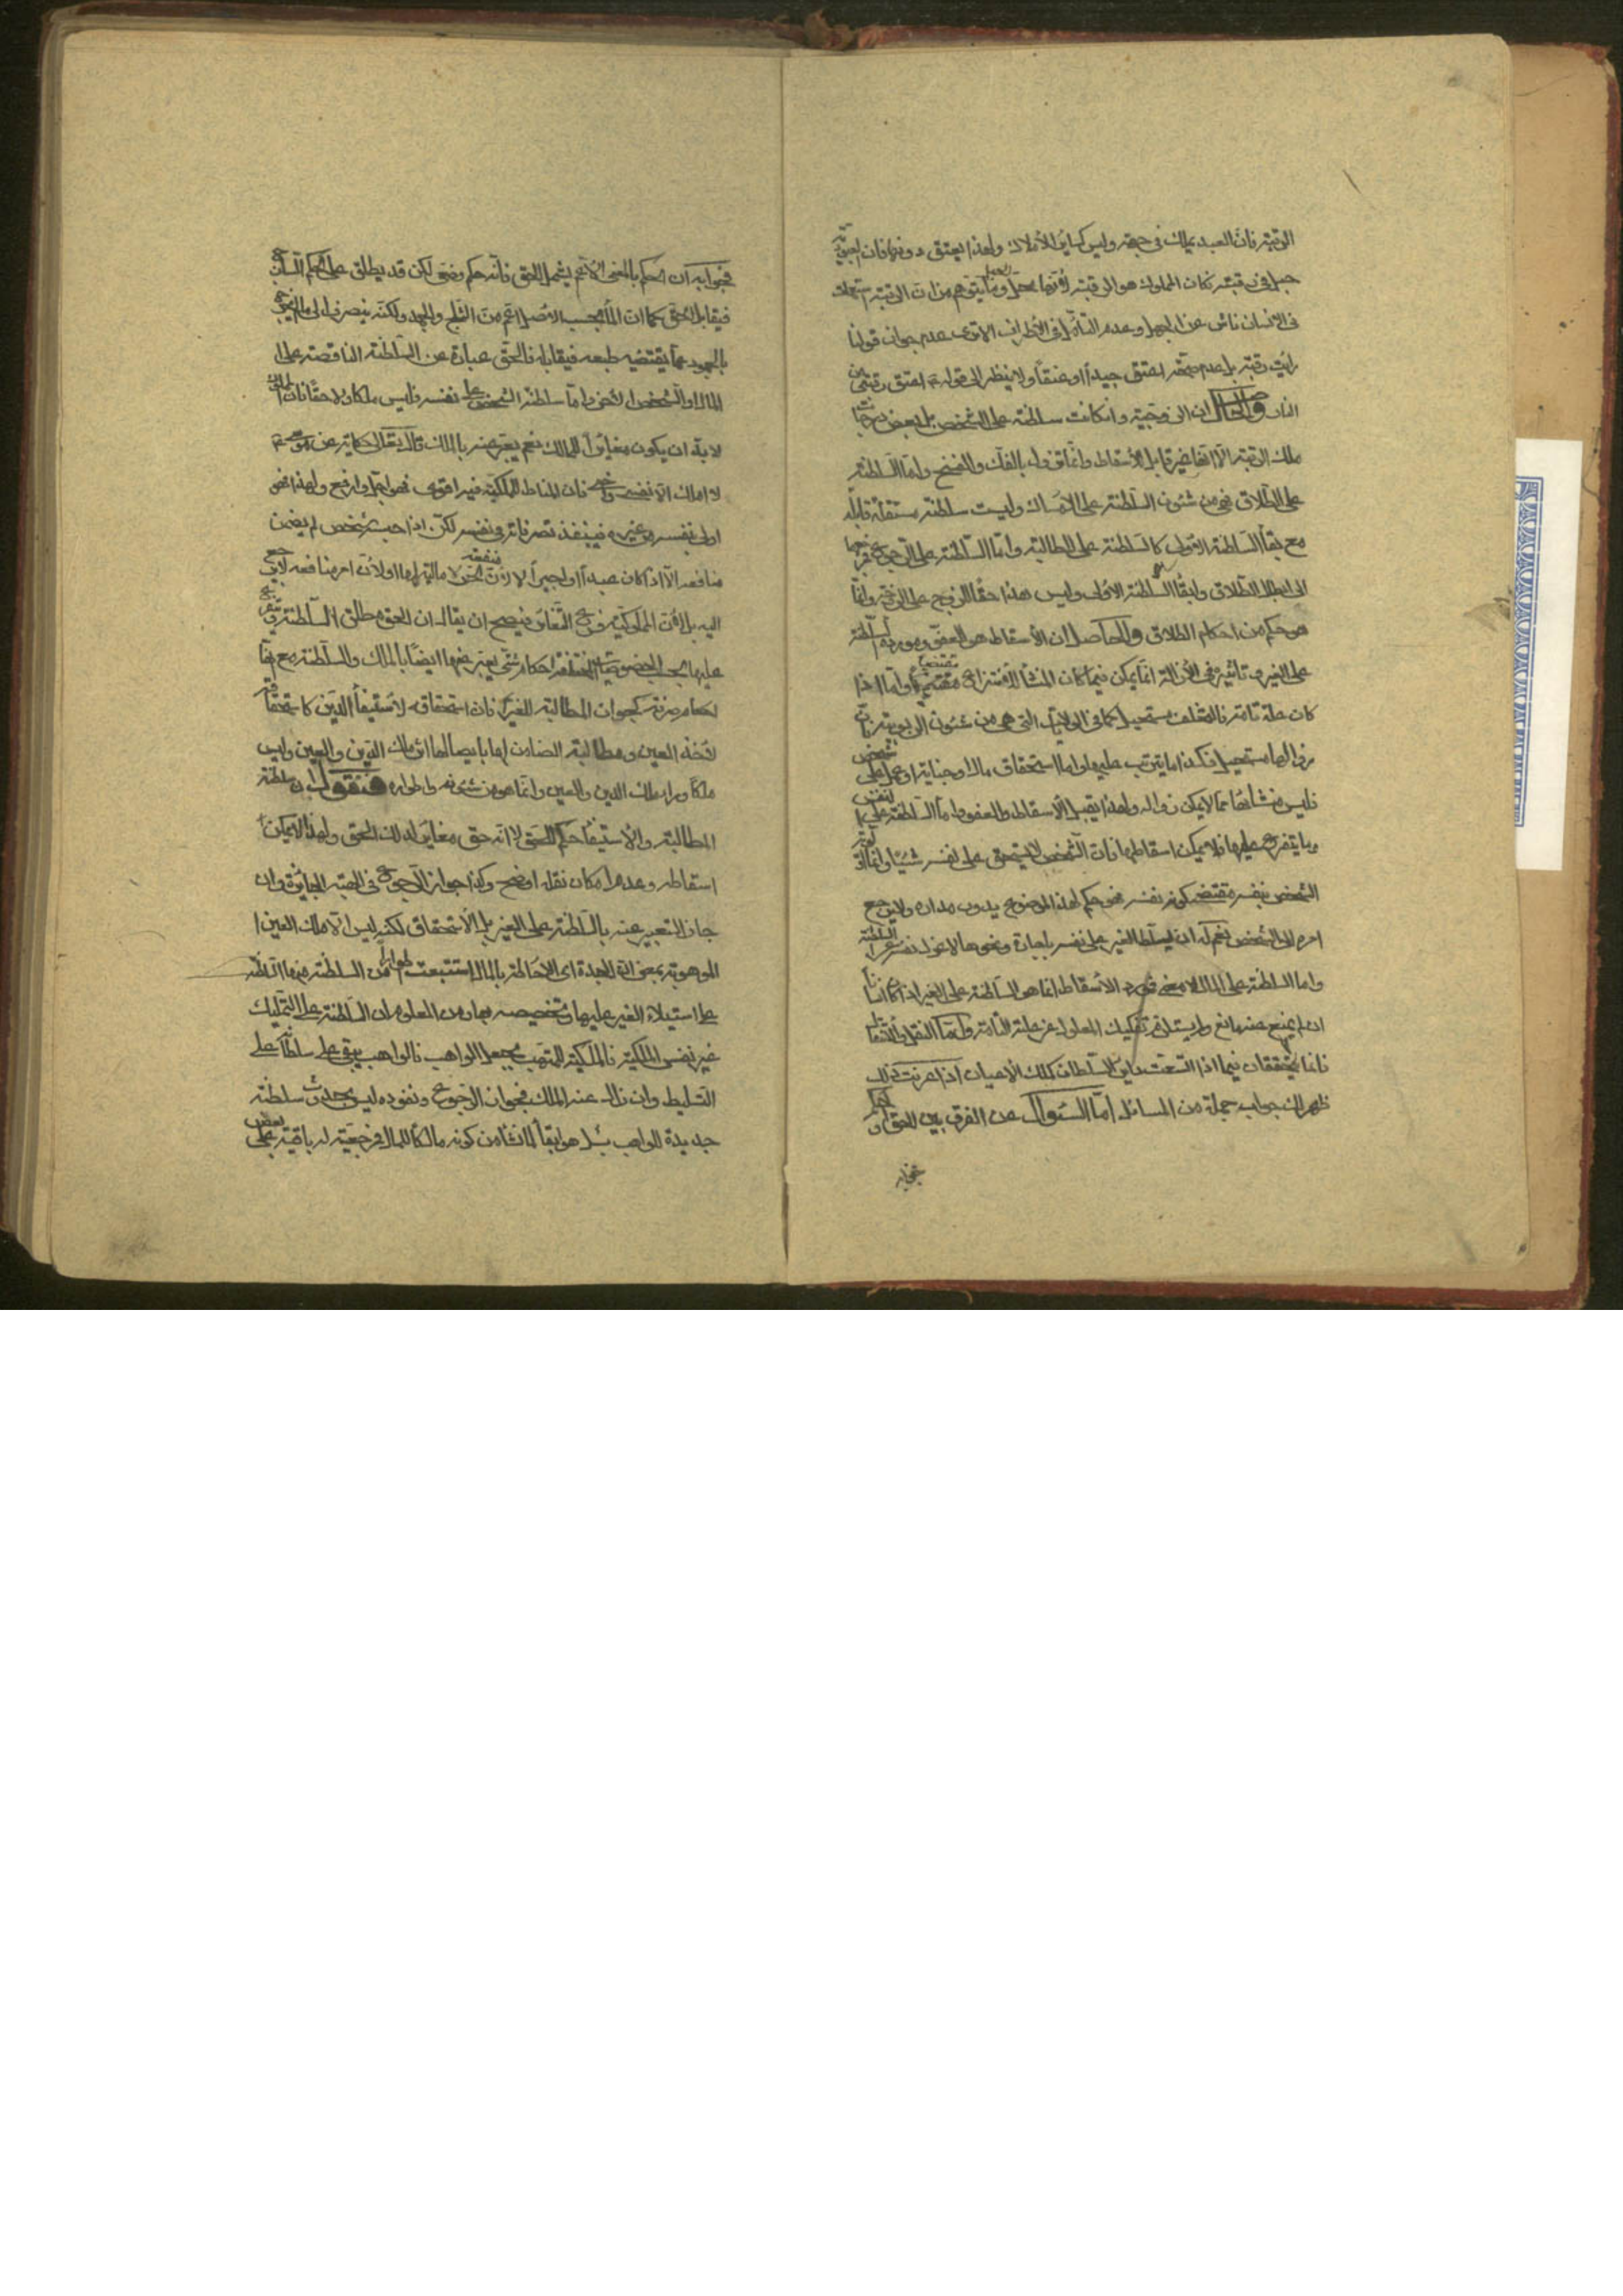 الرقبة فان العبد يملك فى جهة وليس كساير الأملاك ولهذا يعتق دونها فان العبودية
حبل فى رقبته فكان المملوك هو الرقبة لأنها محل الحبل وما يتوهم من ان الرقبة استعملت
فى الانسان ناش عن الجهل وعدم التأمل فى الأطراف الا ترى عدم جواز قولنا
رايت رقبة بل عدم صحة اعتق جيداً او عنقاً ولا ينظر الى قوله اعتق رقبتى من
النار والحاصل ان الزوجية وان كانت سلطنة على الشخص بل بعض درجات
ملك الرقبة الا انها غير قابل للأسقاط وانما تزول بالفك والفسخ واما السلطنة
على الطلاق فهى من شئون السلطنة على الامساك وليست سلطنة مستقلة قابلة
مع بقاء السلطنة الاولى كالسلطنة على المطالبة واما السلطنة على الرجوع فمرجعها
الى ابطال الطلاق وابقاء السلطنة الاولى وليس هذا حقا للزوج على الزوجة وانما
هو حكم من احكام الطلاق والحاصل ان الأسقاط هو العفو ومورده السلطنة
على الغير وتاثيره فى الأزالة انما يمكن فيما كان المنشأ للأنتزاع مقتضيا واما اذا
كان علة تامة فالتخلف مستحيل كما فى الولاية التى هى من شئون الربوبية فان
زوالها مستحيل فكذا ما يترتب عليها واما استحقاق مال او جناية او عمل على شخص
فليس منشأها مما لا يمكن زواله ولهذا يقبل الأسقاط والعفو واما السلطنة على النفس
وما يتفرع عليها فلا يمكن اسقاطها فان الشخص لا يستحق على نفسه شيئا وانما كونه
الشخص بنفسه مقتضى كونه نفسه فهو حكم لهذا الموضوع يدور مداره ولا يرجع
امره الى الشخص نعم له ان يسلط الغير على نفسه باجارة ونحوها لا عزل نفسه عن السلطنة
واما السلطنة على المال فلا معنى فمورد الأسقاط انما هى السلطنة على الغير اذا كان
ان لم يمنع عنه مانع ولم يستلزم تفكيك المعلول عن علته التامة واما النقل والانتقال
فانما يتحققان فيما اذا اتسعت دايرة السلطان كملك الأعيان اذا عرفت ذلك
ظهر لك جواب جملة من المسائل اما السئوال عن الفرق بين الحق والحكم
فجوابه
فجوابه ان الحكم بالمعنى الأعم يشمل الحق فانه حكم وضعى لكن قد يطلق على الحكم
فيقابل الحق كما ان الماء بحسب الاصل اعم من الثلج والجمد ولكنه ينصرف الى ما لم يخرج
بالجمود عما يقتضيه طبعه فيقابله فالحق عبارة عن السلطنة الناقصة على
المال او الشخص الأخر واما سلطنة الشخص على نفسه فليس ملكا ولا حقا فان المالك
لا بد ان يكون مغايراً للمالك نعم يعبر عنه بالملك قال تعالى حكاية عن موسى
لا املك الا نفسى واخى فان المناط للملكية فيه اقوى فهو اجل وارفع ولهذا فهو
اولى بنفسه من غيره فينفذ تصرفاته فى نفسه لكن اذا حبسه شخص لم يضمن
منافعه الا اذا كان عبداً او اجيراً لا لان منفعة الحر لا مالية لها اولأن امر منافعه لا يرجع
اليه بل لأن المملوكية فرع التغاير فيصح ان يقال ان الحق مطلق السلطنة ويتفرع
عليها بحسب الخصوصيات المختلفة احكام شتى يعبر عنها ايضاً بالملك والسلطنة مع انها
احكام صرفة كجواز المطالبة للغير فان استحقاقه لأستيفاء الدين كاستحقاقه
لأخذ العين ومطالبة الضامن لها بايصالها اثر ملك الدين والعين وليس
ملكا وراء ملك الدين والعين وانما هو من شئونه واطواره فنقول ان سلطنة
المطالبة والأستيفاء حكم للحق لا انه حق مغاير لذلك الحق ولهذا لا يمكن
اسقاطه وعدم امكان نقله اوضح وكذا جواز الرجوع فى الهبة الجائزة وان
جاز التعبير عنه بالسلطنة على الغير بل الأستحقاق لكنه ليس الا ملك العين
الموهوبة بمعنى ان الجدة اى الاحاطة بالمال استتبعت اطواراً من السلطنة منها السلطنة
على استيلاء الغير عليها وتخصيصه بها ومن المعلوم ان السلطنة على التمليك
غير نفس الملكية فالملكية للمتهب بجعل الواهب فالواهب يبقى على سلطانه على
التسليط وان زال عنه الملك فجواز الرجوع ونفوذه ليس بحدوث سلطنة
جديدة للواهب بل هو ابقاء لما نشأ من كونه مالكا للمال فمرجعيته له باقية على بعض